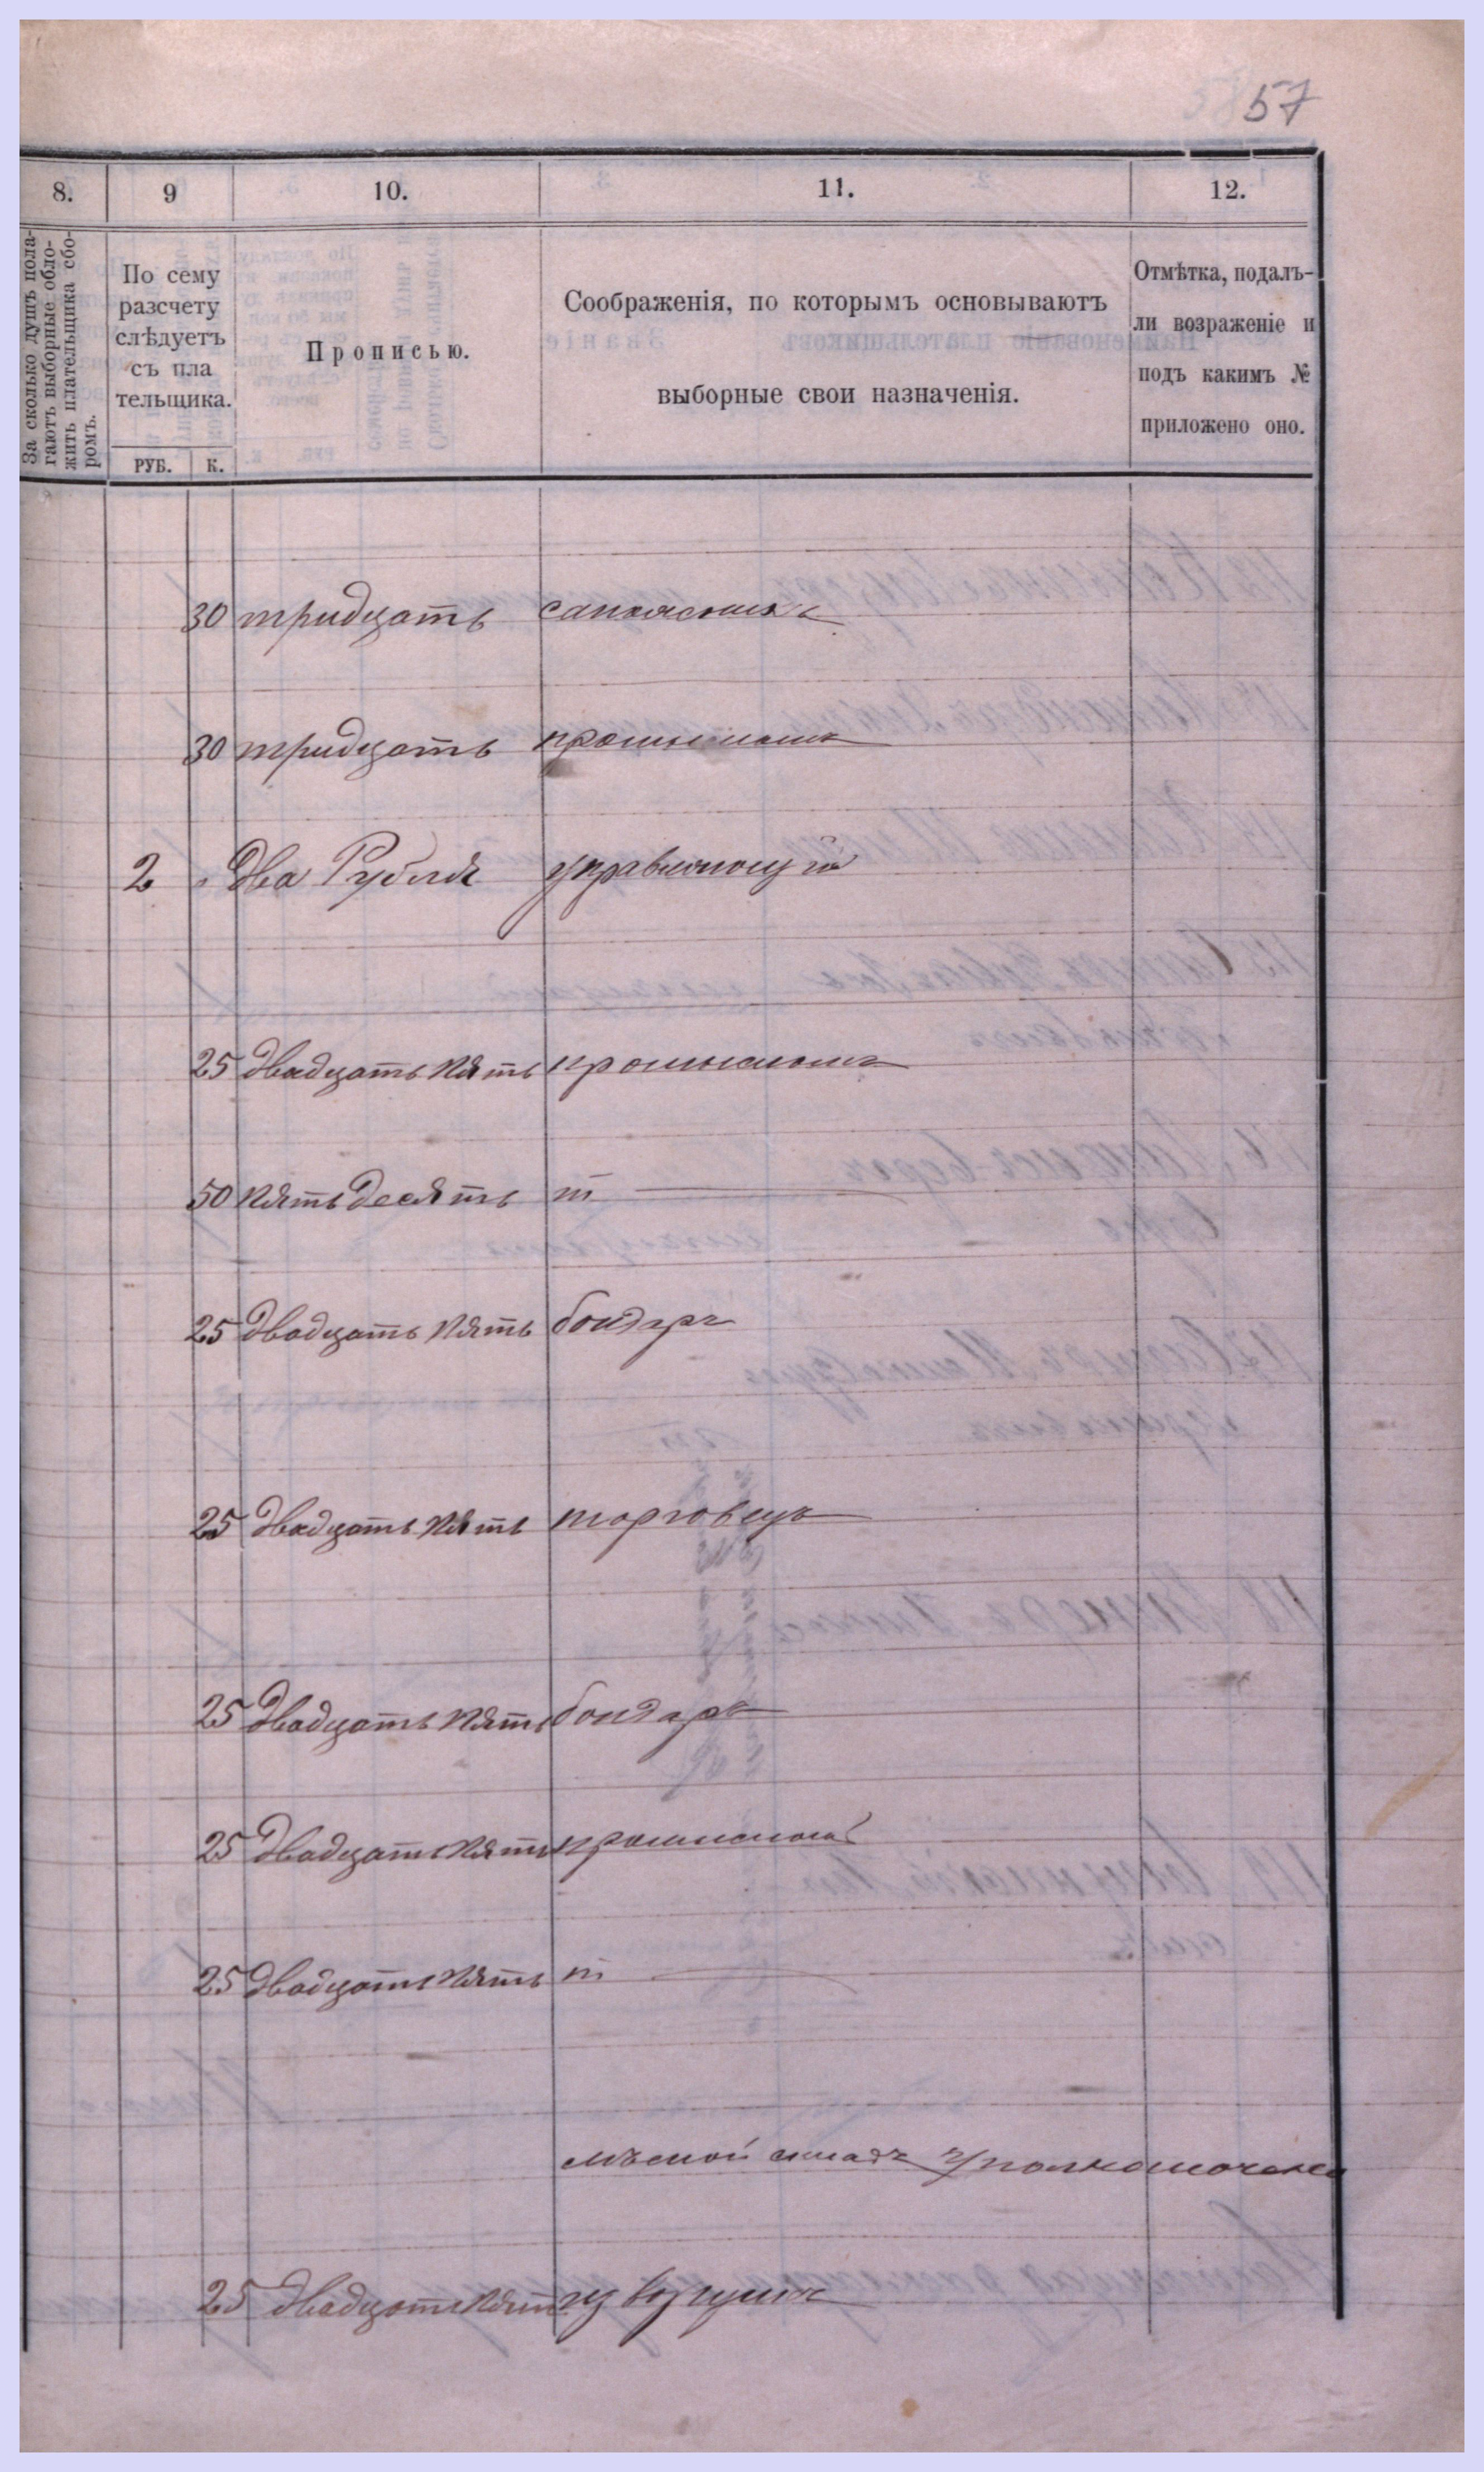 57
8. 9 10. 11. 12.
За сколько душъ пола-
гаютъ выборные обло-
жить плательщика сбо-
ромъ.
По сему
разсчету
слѣдуетъ
съ пла
тельщика.
РУБ. К.
Прописью.
Соображенія, по которымъ основываютъ
выборные свои назначенія.
Отмѣтка, подалъ-
ли возраженіе и
подъ какимъ №
приложено оно.
30 тридцать сапожникъ
30 тридцать промысломъ
2 " Два Рубля управляющій
25 Двадцать пять промысломъ
50 пятьдесять т
25 Двадцать пять бондарь
25 Двадцать пять торговецъ
25 Двадцать пять бондарь
25 Двадцать пять промысломъ
25 Двадцать пять т
складъ Уполномочена
25 Двадцать пять